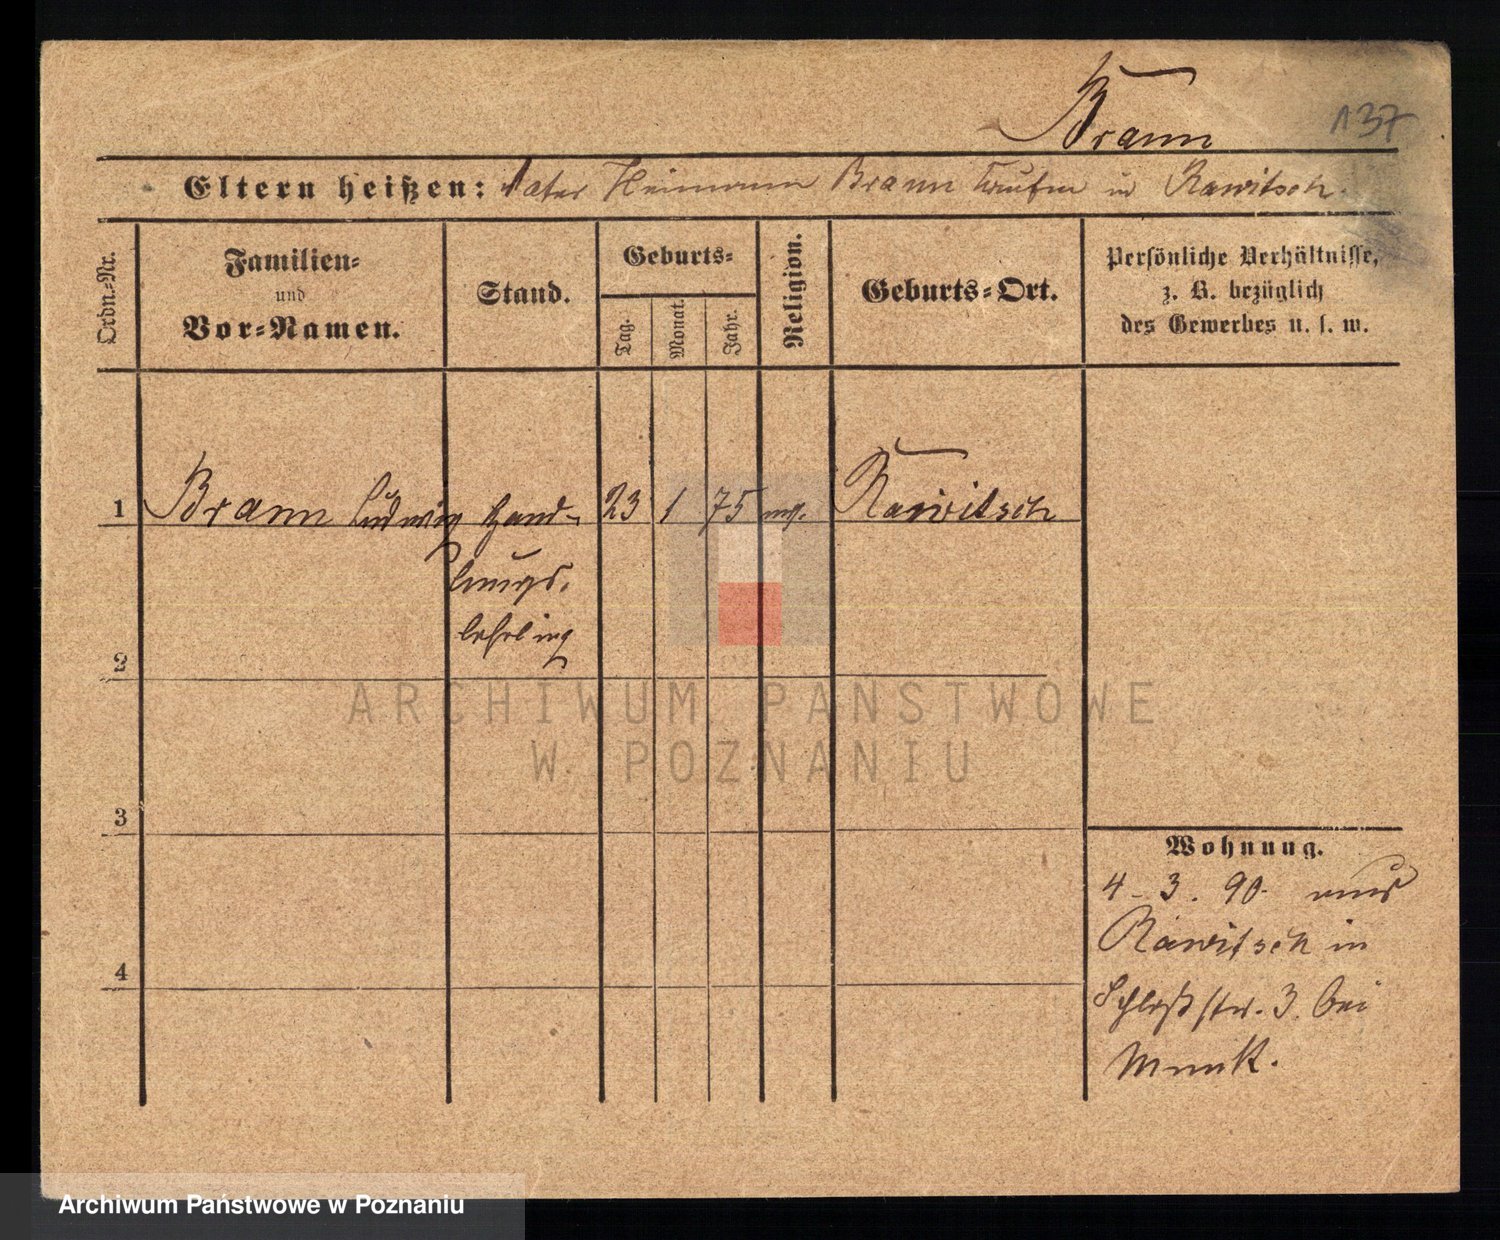 Brann
137
Eltern heißen: Vater Heimann Brann Kaufm in Rawitsch.
Ordn.-Nr.
Familien-
und
Vor-Namen.
Stand.
Geburts-
Tag.
Monat.
Jahr.
Religion.
Geburts-Ort.
Persönliche Verhältnisse,
z. B. bezüglich
des Gewerbes u. s. w.
1 Brann Ludwig Hand- 23 1 75 mos. Rawitsch
lungs-
lehrling
2
3
4
Wohnung.
4-3. 90. aus
Rawitsch in
Schloßstr. 3. bei
Munk.
ARCHIWUM PAŃSTWOWE
W POZNANIU
Archiwum Państwowe w Poznaniu